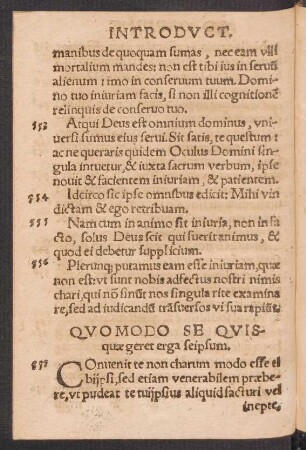 INTRODVCT.
manibus de quoquam sumas, nec eam vlli
mortalium mandes: non est tibi ius in seruū
alienum: imo in conseruum tuum. Domi-
no tuo iniuriam facis, si non illi cognitionē
relinquis de conseruo tuo.
553 Atqui Deus est omnium dominus, vni-
uersi sumus eius serui. Sit satis, te questum:
ac ne queraris quidem Oculus Domini sin-
gula intuetur, & iuxta sacrum verbum, ipse
nouit & facientem iniuriam, & patientem.
554 Idcirco sic ipse omnibus edicit: Mihi vin
dictam & ego retribuam.
555 Nam cum in animo sit iniuria, non in fa
cto, solus Deus scit qui fuerit animus, &
quod ei debetur supplicium.
556 Plerunq; putamus eam esse iniuriam, quæ
non est: vt sunt nobis adfectus nostri nimis
chari, qui nō sinūt nos singula rite examina
re, sed ad iudicandū trāsuersos vi sua rapiūt.
QVOMODO SE QVIS-
quæ geret erga seipsum.
557 COnuenit te non charum modo esse
bijpsi, sed etiam venerabilem præbe-
re, vt pudeat te tuijpsius aliquid facturi vel
inepte,